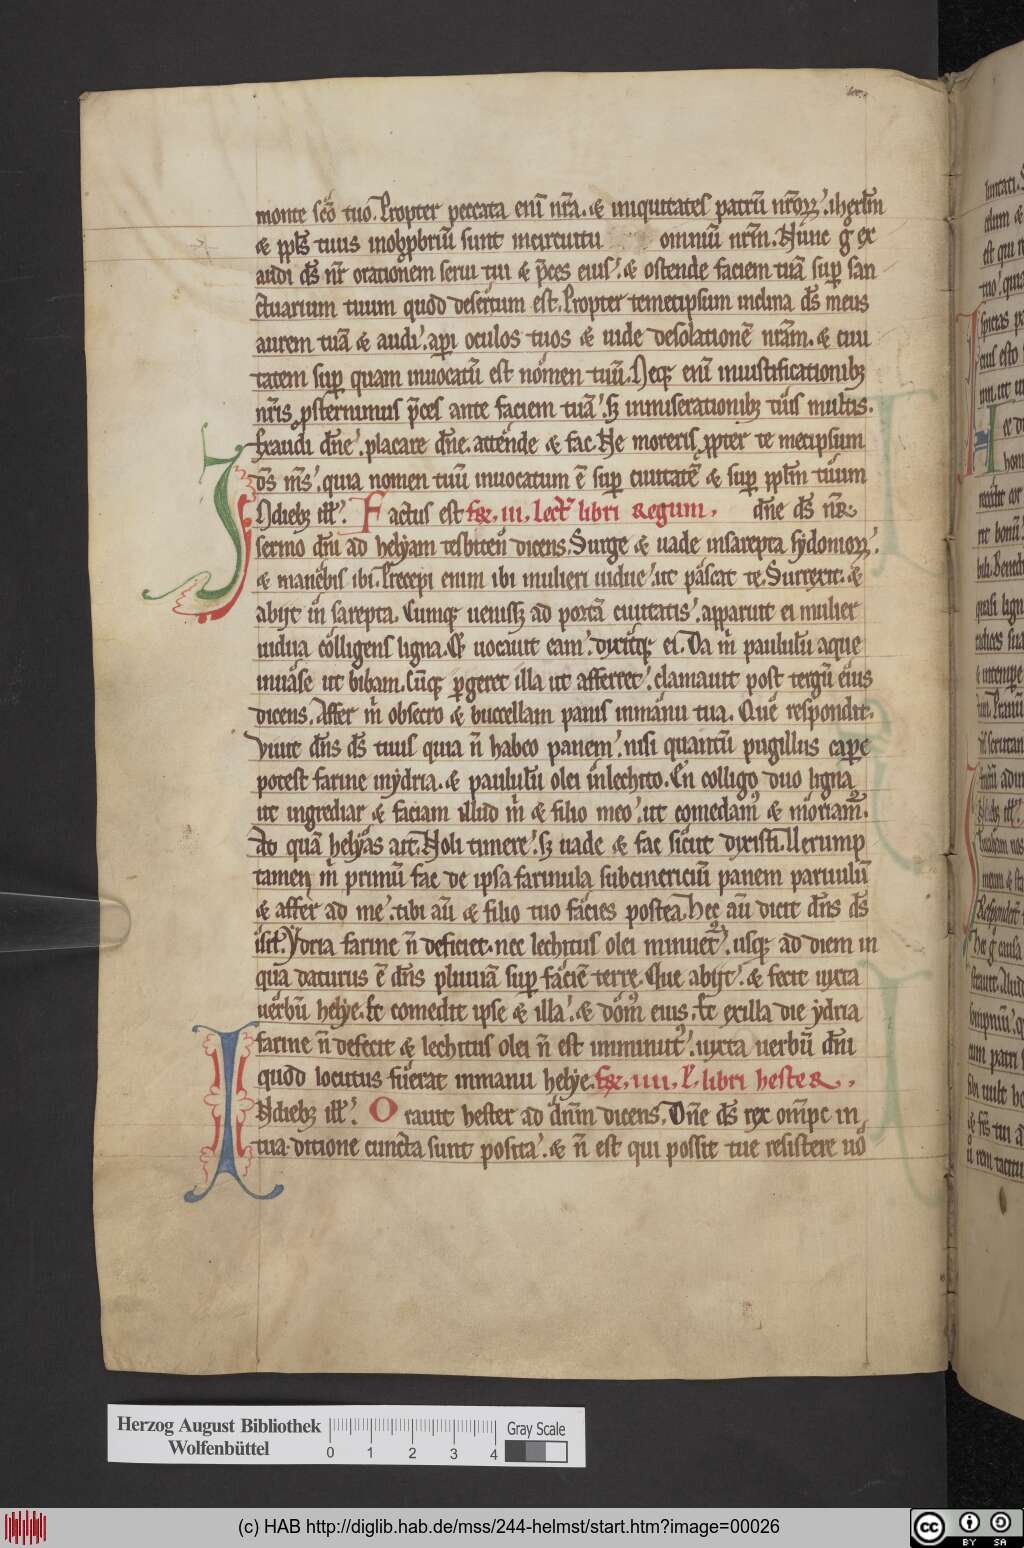 monte scō tuo. Propter peccata enī nr̄a. & iniquitates patrū nrōꝝ. iherlm̄
& ppls̄ tuus inobprbriū sunt incircuitu omniū nrm̄. Nunc gͦ ex
audi ds̄ nr̄ orationem serui tui & p̄ces eius. & ostende faciem tuā suꝑ san
ctuarium tuum quod desertum est. Propter temetipsum inclina ds̄ meus
aurem tuā & audi. aꝑi oculos tuos & uide desolationē nr̄am. & ciui
tatem suꝑ quam inuocatū est nomen tuū. Neqꝫ enī iniustificationibꝫ
nr̄is ꝓsternimus p̄ces ante faciem tuā. sꝫ inmiserationibꝫ tuis multis.
Exaudi dn̄e. placare dn̄e. attende & fac. Ne moreris ꝓpter te metipsum
ds̄ ms̄. quia nomen tuū inuocatum ē suꝑ ciuitatē & suꝑ pplm̄ tuum
INdiebꝫ ill̄. Factus est fr̄. iii. lect̄ libri Regum. dn̄e ds̄ nr̄.
sermo dn̄i ad helyam tesbitēn dicens. Surge & uade insarepta sydonioꝝ.
& manebis ibi. Precepi enim ibi mulieri uidue. ut pascat te. Surrexit. &
abijt in sarepta. Cumqꝫ uenissꝫ ad portā ciuitatis. apparuit ei mulier
uidua colligens ligna. & uocauit eam. dixitqꝫ ei. Da m̄ paululū aque
inuase ut bibam. Cūqꝫ ꝑgeret illa ut afferret. clamauit post tergū eius
dicens. Affer m̄ obsecro & buccellam panis inmanu tua. Que respondit.
Viuit dn̄s ds̄ tuus quia n̄ habeo panem. nisi quantū pugillus capere
potest farine inydria. & paululū olei inlechito. En colligo duo ligna
ut ingrediar & faciam illud m̄ & filio meo. ut comedamꝰ & moriamꝰ.
Ad quā helyas ait. Noli timere. sꝫ uade & fac sicut dixisti. Uerump
tamen m̄ primū fac de ipsa farinula subcinericiū panem paruulū
& affer ad me. tibi aū & filio tuo facies postea. Hec aū dicit dn̄s ds̄
isrl̄. Ydria farine n̄ deficiet. nec lechitus olei minuet᷑. usqꝫ ad diem in
qua daturus ē dn̄s pluuiā suꝑ faciē terre. Que abijt. & fecit iuxta
uerbū helye. Et comedit ipse & illa. & domꝰ eius. Et exilla die ydria
farine n̄ defecit & lechitus olei n̄ est imminutꝰ. iuxta uerbū dn̄i
quod locutus fuerat inmanu helye. fr̄. iiii. l̄. libri hester.
INdiebꝫ ill̄. Orauit hester ad dn̄m dicens. Dn̄e ds̄ rex omp̄c in
tua ditione cuncta sunt posita. & n̄ est qui possit tue resistere uo
Herzog August Bibliothek
Wolfenbüttel
0 1 2 3 4
Gray Scale
(c) HAB http://diglib.hab.de/mss/244-helmst/start.htm?image=00026
cc BY SA